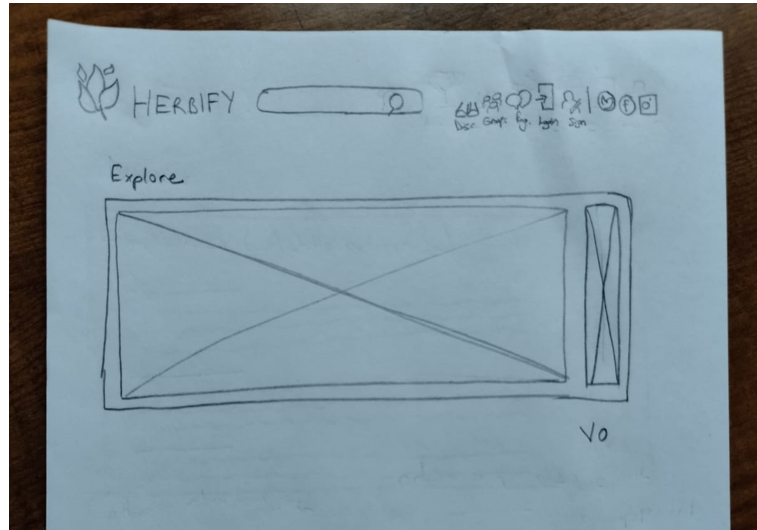 HERBIFY
Disc Groups Login Sign
Explore
V0